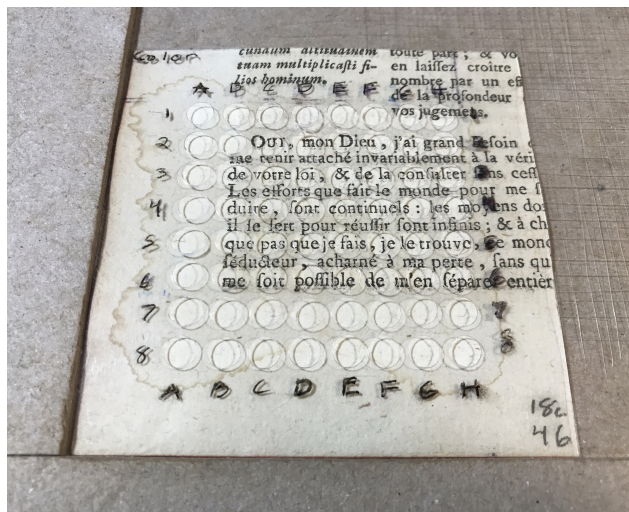 cundum altitudinem
tuam multiplicaſti fi-
lios hominum.
toute part ; & vo
en laiſſez croitre
nombre par un eff
de la profondeur
vos jugemens.
A B C D E F G H
1
Oui, mon Dieu, j'ai grand beſoin
2
me tenir attaché invariablement à la véri
3
de votre loi, & de la conſulter ſans ceſſ
Les efforts que fait le monde pour me ſ
4
duire, ſont continuels : les moyens do
il ſe ſert pour réuſſir ſont infinis ; & à ch
5
que pas que je fais, je le trouve, ce mon
ſéducteur, acharné à ma perte, ſans qu
6
me ſoit poſſible de m'en ſéparer entièr
7 7
8 8
A B C D E F G H
18c
46